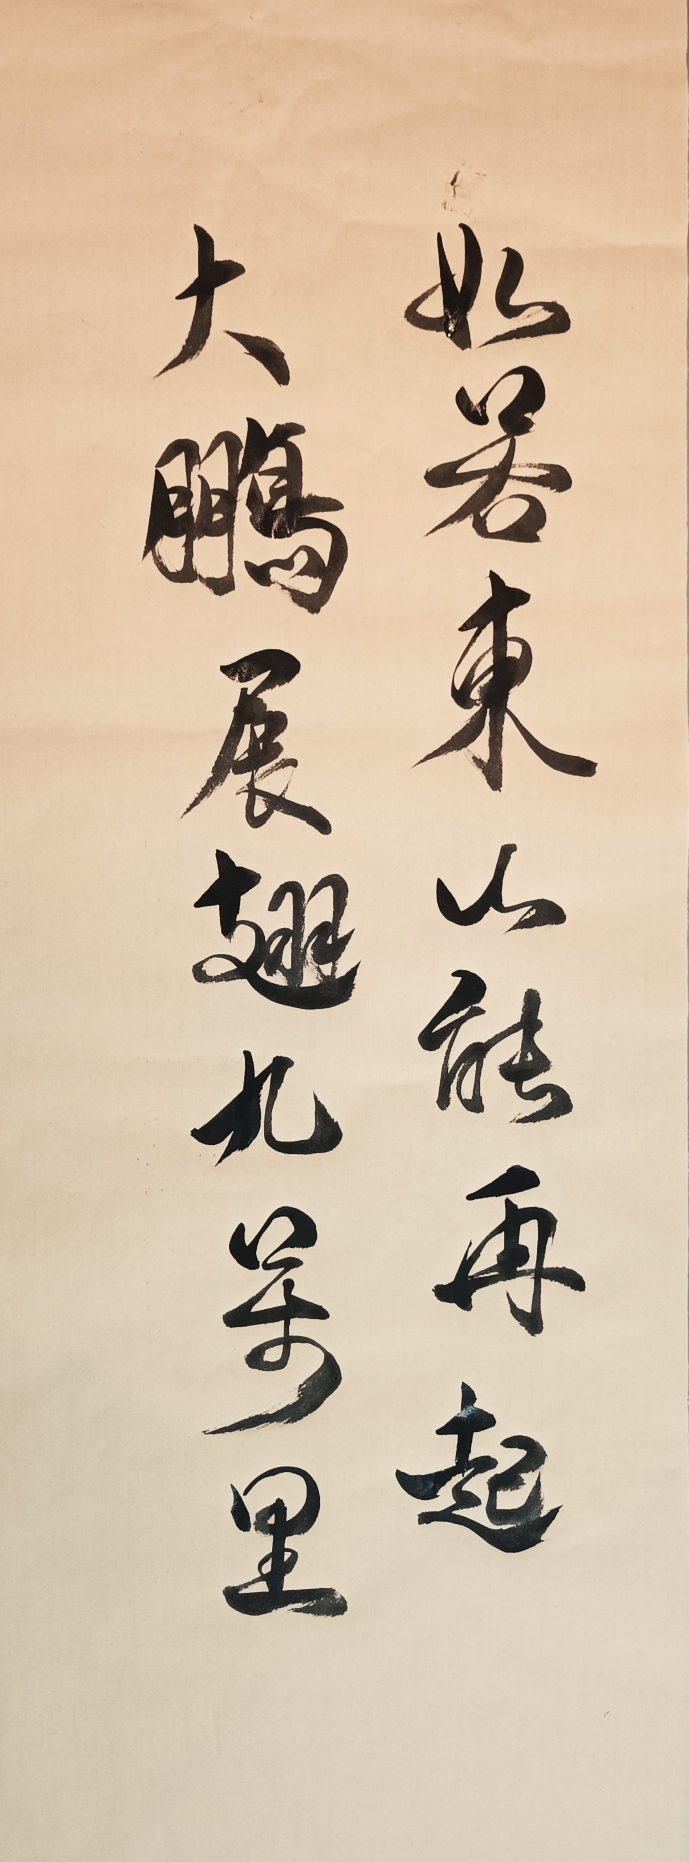 如若東山能再起
大鵬展翅九萬里